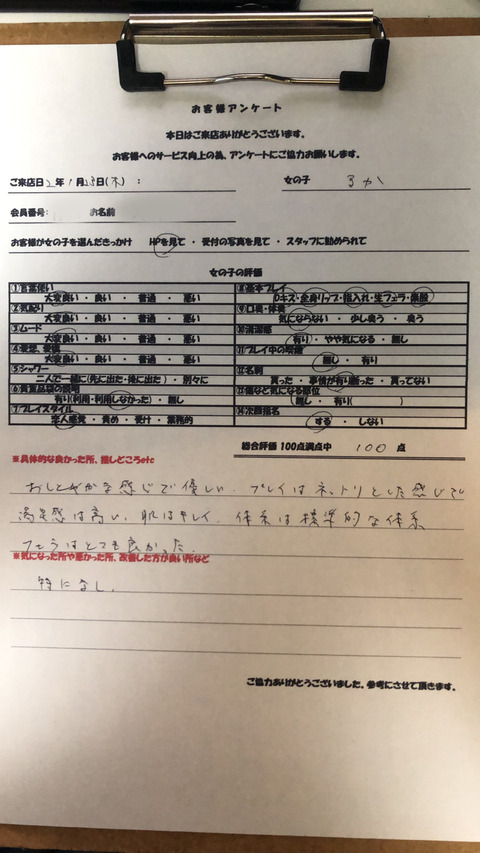 お客様アンケート
本日はご来店ありがとうございます。
お客様へのサービス向上の為、アンケートにご協力お願いします。
ご来店日 2年 1月23日(木) : 女の子
会員番号: お名前
お客様が女の子を選んだきっかけ HPを見て ・ 受付の写真を見て ・ スタッフに勧められて
女の子の評価
①言葉使い
大変良い ・ 良い ・ 普通 ・ 悪い
②気配り
大変良い ・ 良い ・ 普通 ・ 悪い
③ムード
大変良い ・ 良い ・ 普通 ・ 悪い
④愛想、愛嬌
大変良い ・ 良い ・ 普通 ・ 悪い
⑤シャワー
二人で一緒に(先に出た・後に出た) ・ 別々に
⑥貴重品袋の使用
有り(利用・利用しなかった) ・ 無し
⑦プレイスタイル
恋人感覚 ・ 責め ・ 受け ・ 業務的
⑧基本プレイ
Dキス・全身リップ・指入れ・生フェラ・素股
⑨口臭・体臭
気にならない ・ 少し臭う ・ 臭う
⑩清潔感
有り ・ やや気になる ・ 無し
⑪プレイ中の喫煙
無し ・ 有り
⑫名刺
貰った ・ 事情が有り断った ・ 貰ってない
気になる部位
無し ・ 有り( )
⑭次回指名
する ・ しない
総合評価 100点満点中 100 点
※具体的な良かった所、推しどころetc
おしとやかな感じで優しい。プレイはネットリとした感じで
満足感は高い。肌はキレイ。体系は標準的な体系
フェラはとても良かった。
※気になった所や悪かった所、改善した方が良い所など
特になし。
ご協力ありがとうございました。参考にさせて頂きます。